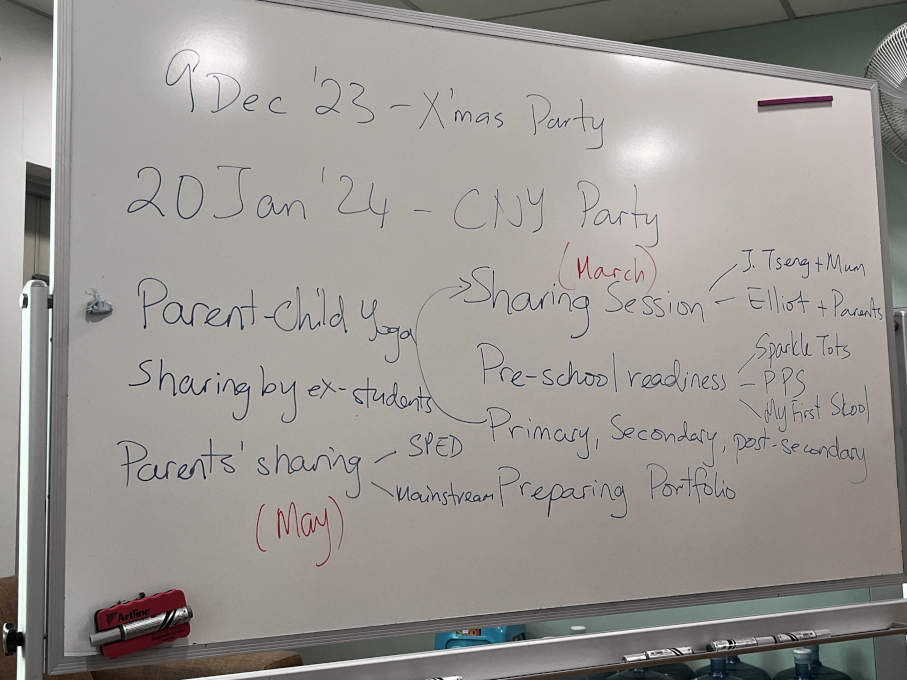 9 Dec '23 - X'mas Party
20 Jan '24 - CNY Party
(March)
Parent-Child Yoga
Sharing by ex-students
Parents' sharing
SPED
Mainstream
(May)
Sharing Session
J. Tseng + Mum
Elliot + Parents
Pre-school readiness
Sparkle Tots
PPS
My First Skool
Primary, Secondary, post-secondary
Preparing Portfolio
Artline